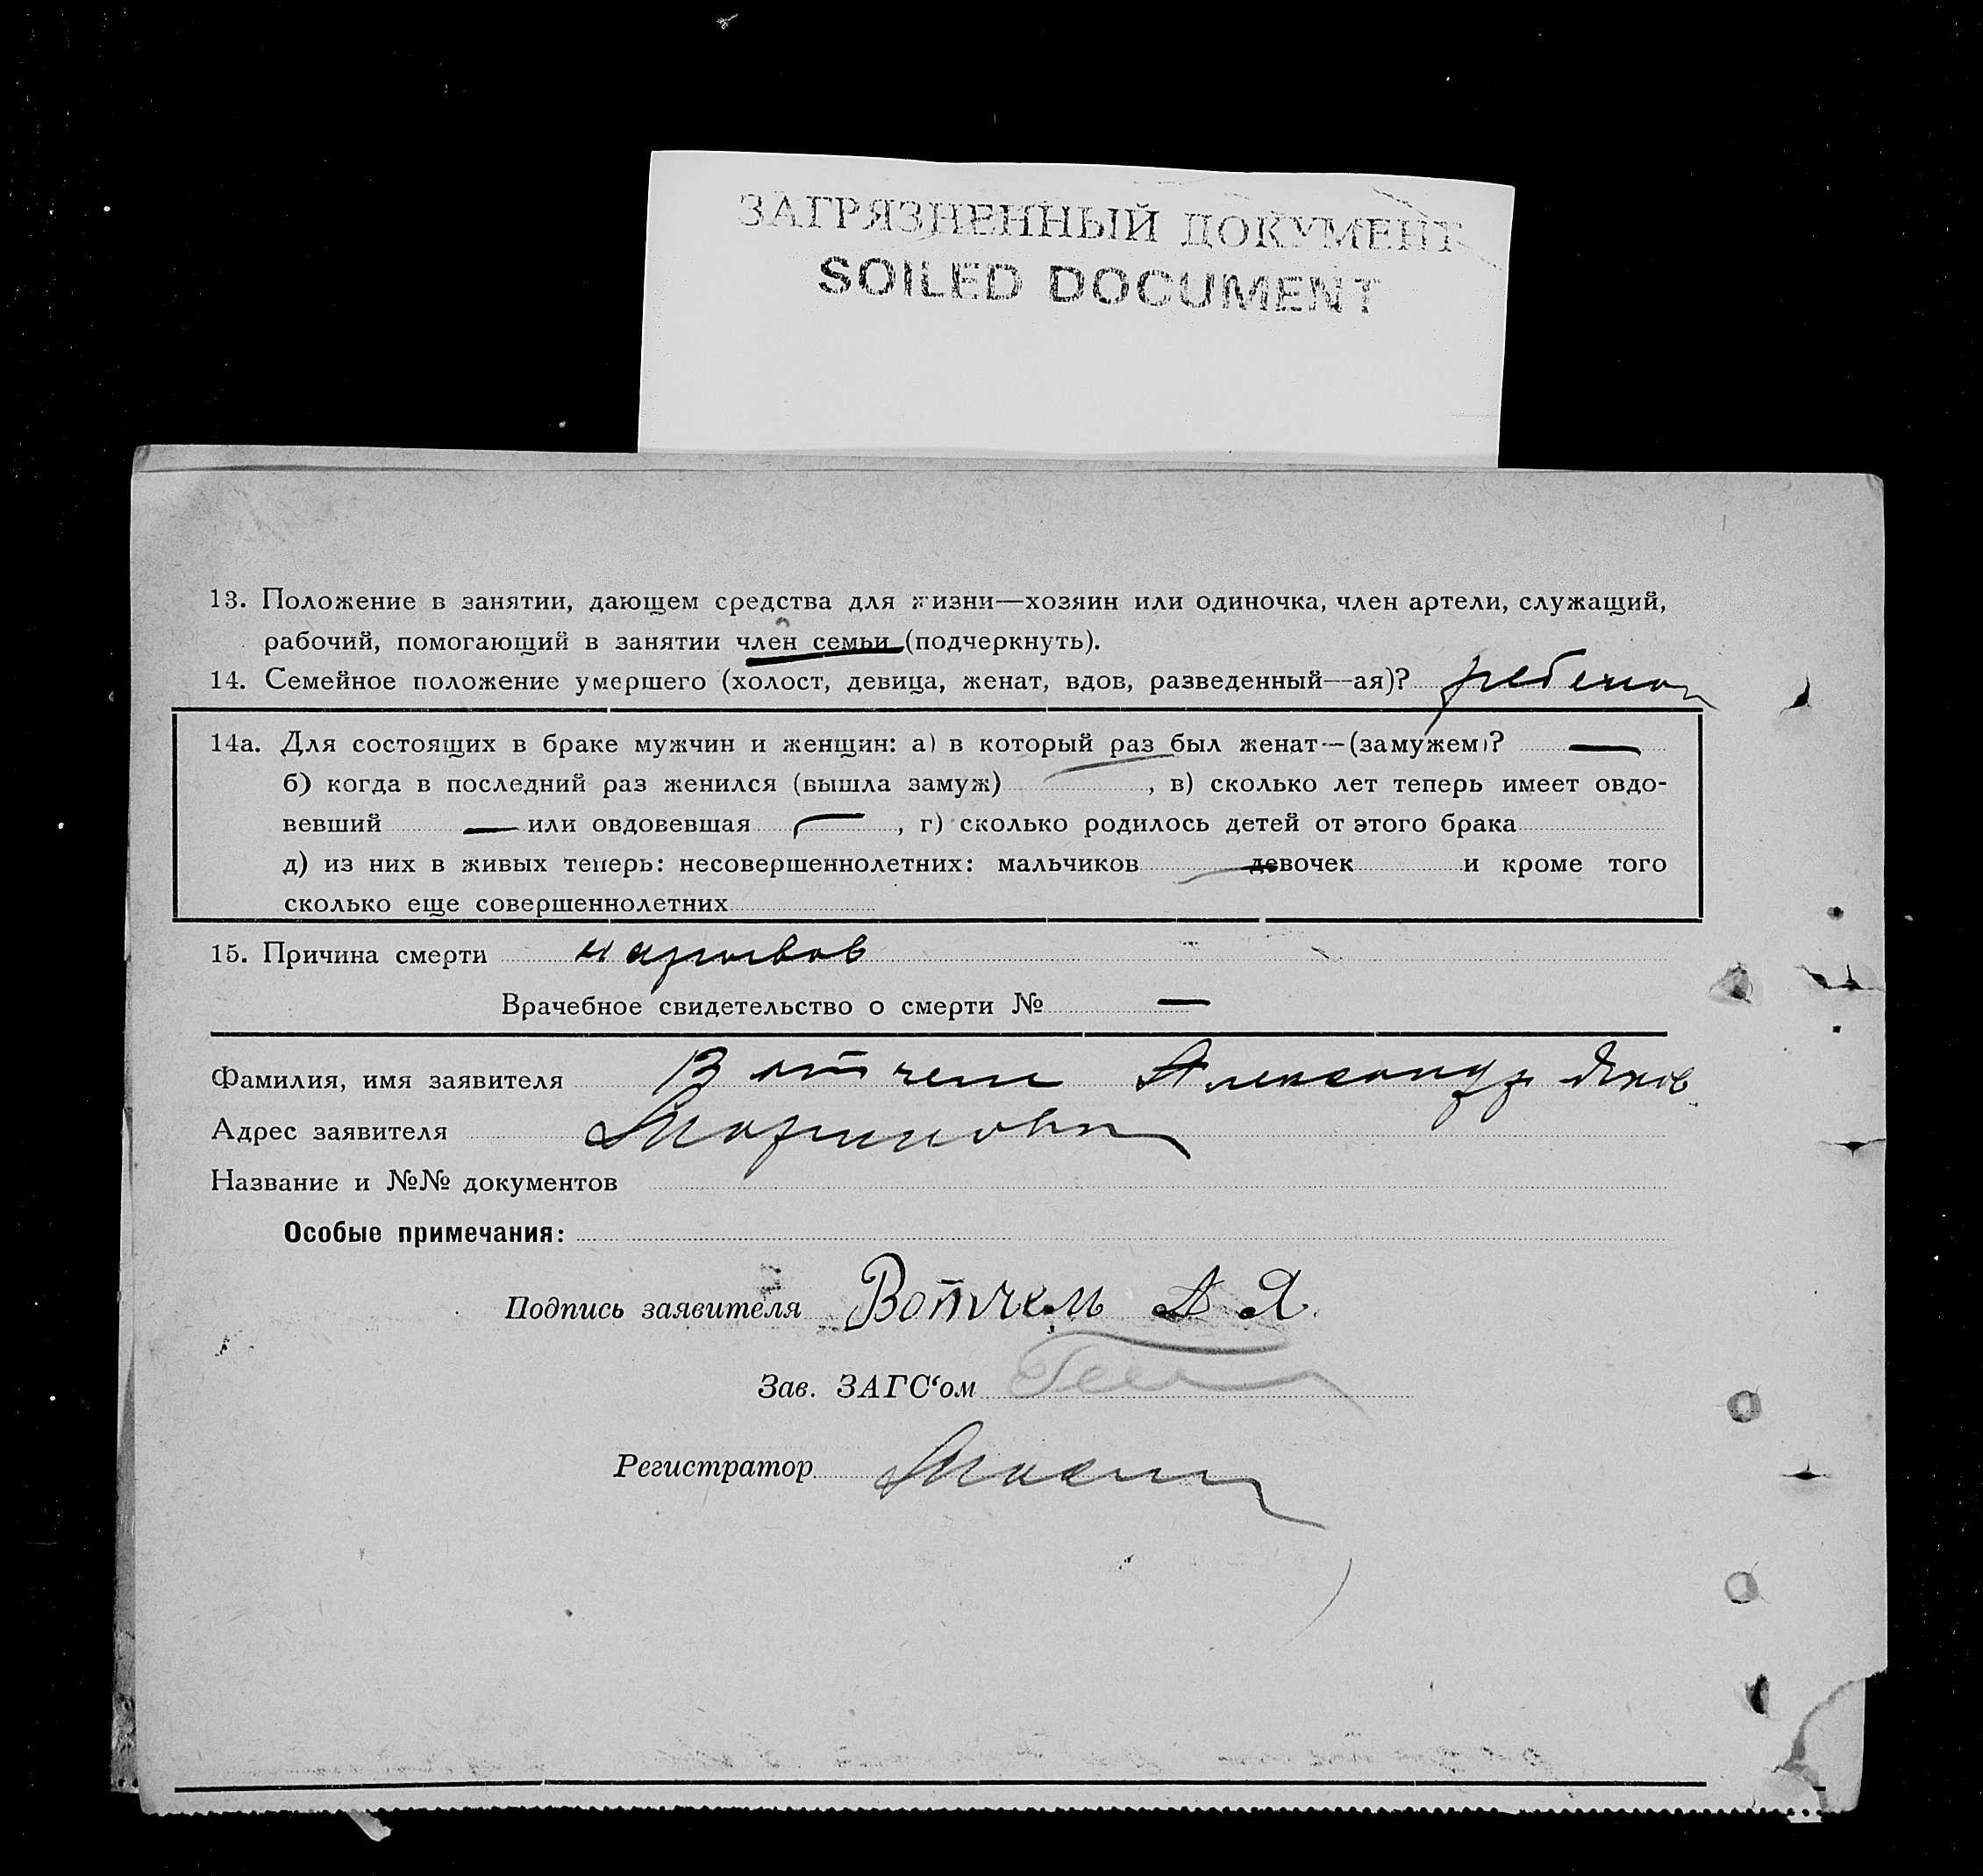 ЗАГРЯЗНЕННЫЙ ДОКУМЕНТ
SOILED DOCUMENT
13. Положение в занятии, дающем средства для жизни—хозяин или одиночка, член артели, служащий,
рабочий, помогающий в занятии член семьи (подчеркнуть).
14. Семейное положение умершего (холост, девица, женат, вдов, разведенный—ая)? ребенок
14а. Для состоящих в браке мужчин и женщин: а) в который раз был женат—(замужем)? —
б) когда в последний раз женился (вышла замуж) , в) сколько лет теперь имеет овдо-
вевший — или овдовевшая — , г) сколько родилось детей от этого брака
д) из них в живых теперь: несовершеннолетних: мальчиков девочек и кроме того
сколько еще совершеннолетних
15. Причина смерти нарывов
Врачебное свидетельство о смерти № —
Фамилия, имя заявителя Вотчель Александр Яков.
Адрес заявителя
Название и №№ документов
Особые примечания:
Подпись заявителя Вотчель А Я.
Зав. ЗАГС‘ом
Регистратор